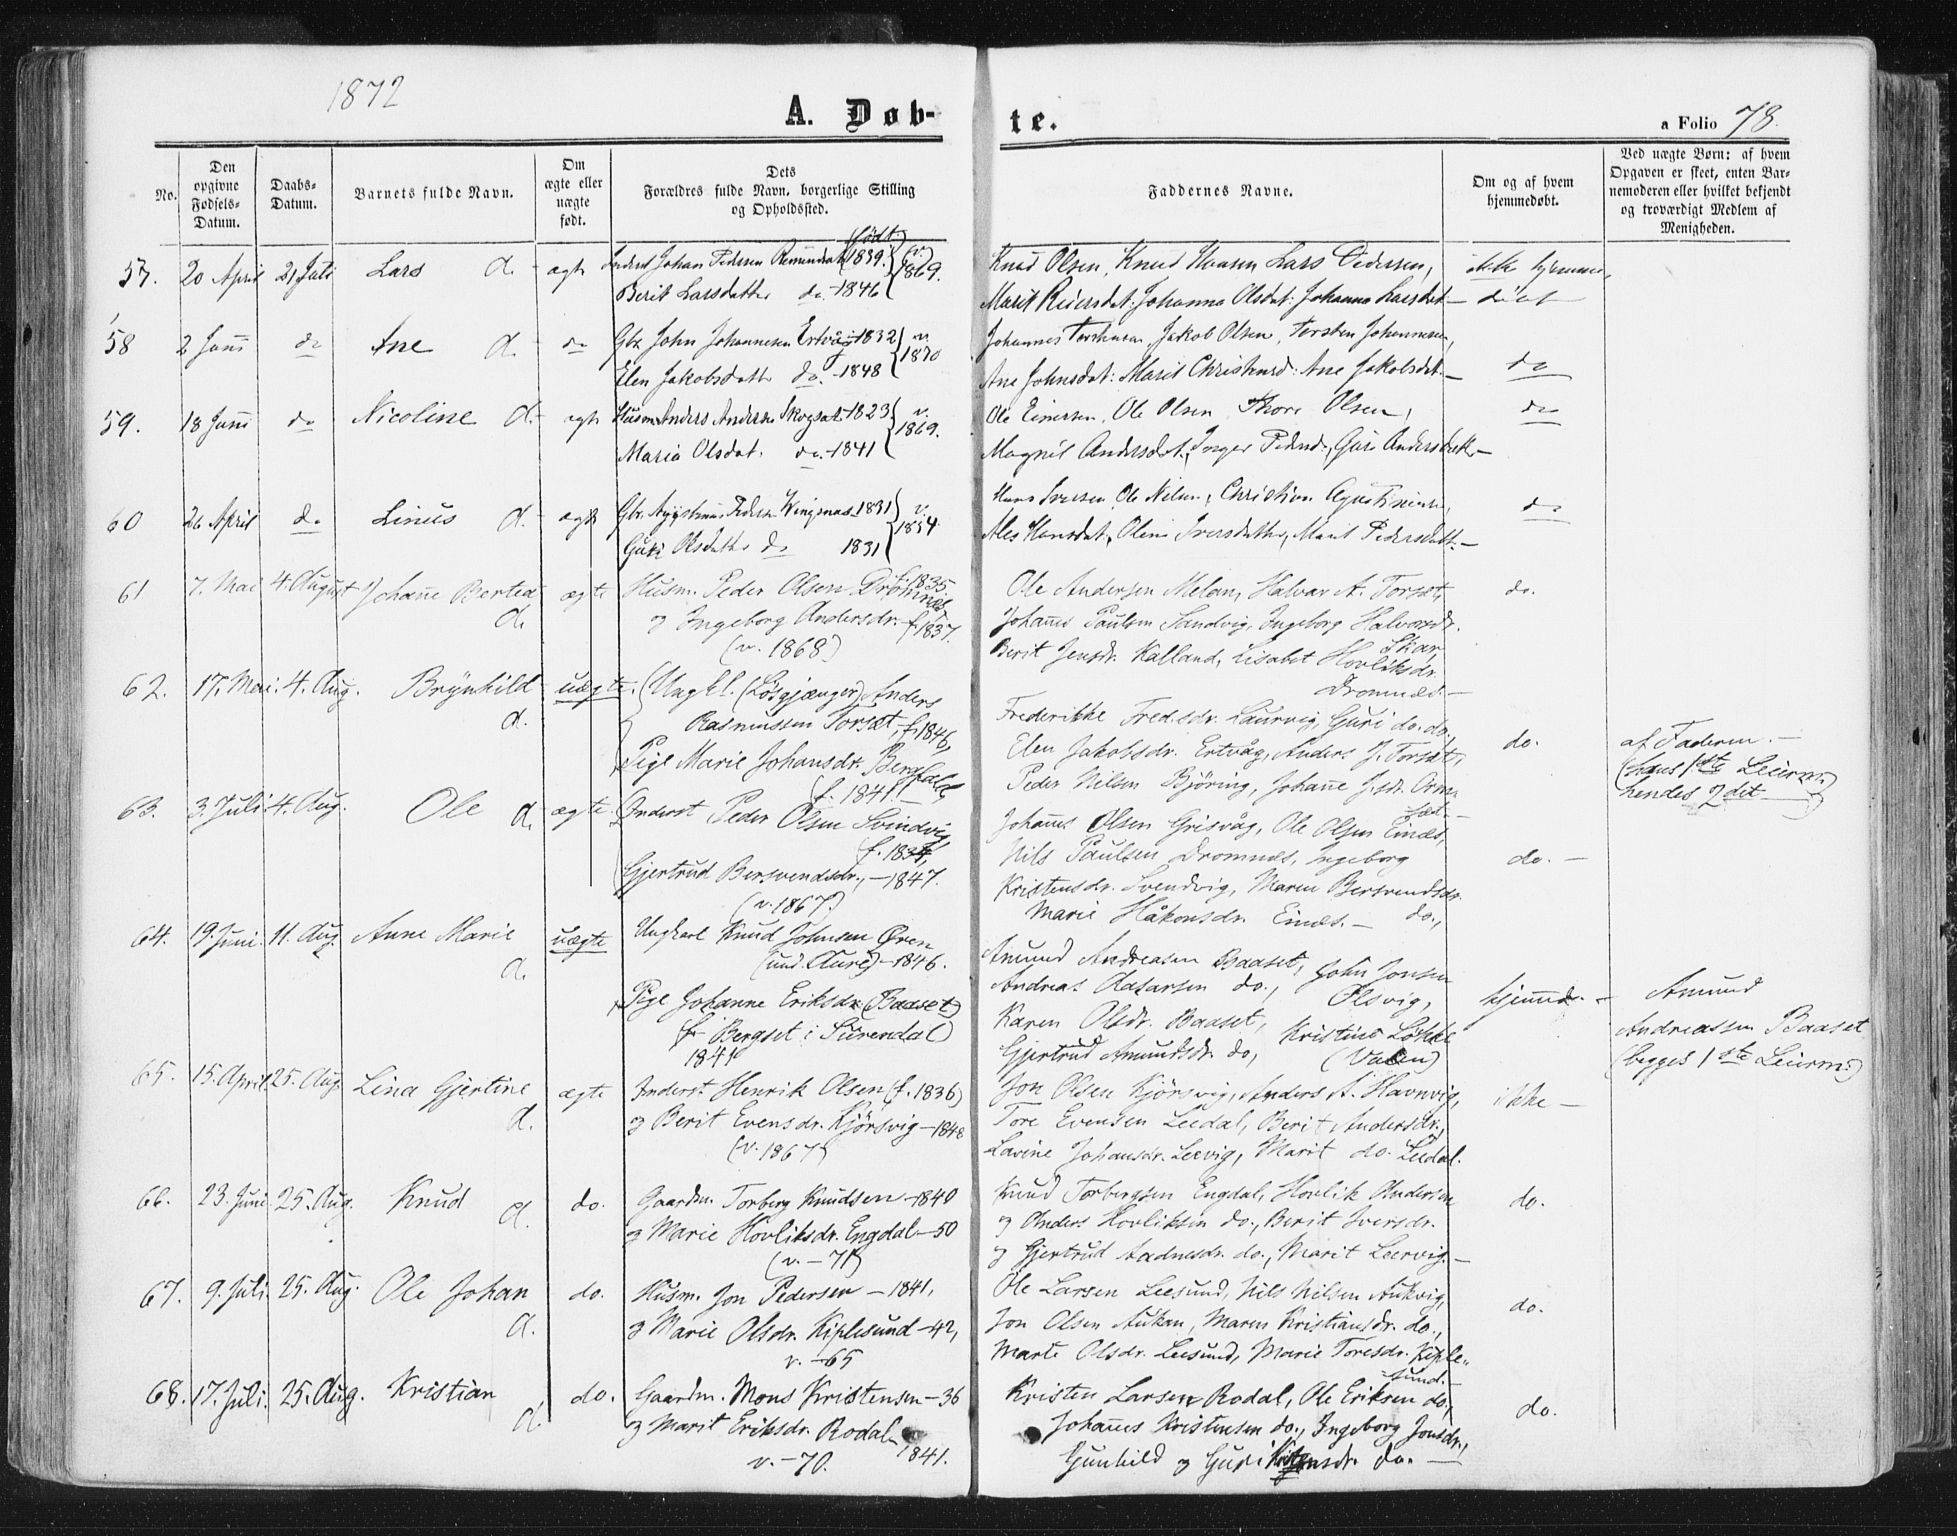 1872
A. Døb-
te.
a Folio 78.
No.
Den opgivne Fødsels-Datum.
Daabs-Datum.
Barnets fulde Navn.
Om ægte eller uægte født.
Dets Forældres fulde Navn, borgerlige Stilling og Opholdssted.
Faddernes Navne.
Om og af hvem hjemmedøbt.
Ved uægte Børn: af hvem Opgaven er skeet, enten Barnemoderen eller hvilket bekjendt og troværdigt Medlem af Menigheden.
57. 20 April 21 Juli Lars d. ægte Inderst Johan Pedersen (født 1839.) v. 1869.
Berit Larsdatter do. 1846
Knud Olsen, Knud Hansen, Lars Pedersen,
Marit Reiersdat: Johanna Olsdat: Johanna Larsdat.
ikke hjemme-
døbt
58 2 Juni do Ane d. do Gbr. John Johannesen Ertvåg 1832 v. 1870
Elen Jakobsdatter do. 1848
Johannes Torstensen, Jakob Olsen, Torsten Johannesen,
Ane Johnsdat: Marit Christensd: Ane Jakobsdat.
do
59. 18 Juni do Nicoline d. ægte Husm. Anders Andersen Skogsæt 1823 v. 1869.
Maria Olsdat. do. 1841
Ole Einersen, Ole Olsen, Thore Olsen,
Magnil Andersdat., Inger Pedersd., Guri Andersdatt.
do
60 26 April do Linus d. ægte Gbr. Agustinus Pedersen Vingsnæs 1831 v. 1854.
Guri Olsdatter do 1831
Hans Iversen, Ole Nilsen, Christian Agustinusen,
Ales Hansdat., Olina Iversdatter, Marit Pedersdatt.
do
61 7. Mai 4. August Johanne Bertea d. ægte Husm. Peder Olsen Dromnæs f. 1835
og Ingeborg Andersdr. f. 1837.
(v. 1868.)
Ole Andersen Melan, Halvar A. Torsæt,
Johannes Paulsen Sandvig, Ingeborg Halvorsdr. Skar,
Berit Jensdr. Kalland, Lisabet Hovliksdr.
Dromnæs.
do.
62. 17. Mai. 4. Aug. Brynhild d. uægte. Ungkl. (Løsgjænger) Anders
Rasmussen Torsæt, f. 1846,
Pige Marie Johansdr. Bergfald,
f. 1841.
Frederikke Fredsdr. Laurvig, Guri do. do,
Elen Jakobsdr. Ertvåg, Anders J. Torsæt,
Peder Nilsen Björing, Johanne J.sdr. Orm-
sæt.
do.
af Faderen.
(hans 1ste Leierm.
hendes 2det)
63. 3. Juli 4. Aug. Ole d. ægte. Inderst Peder Olsen Svindvig,
(f. 1834,
Gjertrud Bersvendsdr., 1847.
(v. 1867.)
Johannes Olsen Grisvåg, Ole Olsen Einæs,
Nils Paulsen Dromnæs, Ingeborg
Kristensdr. Svendvig, Maren Bersvendsdr. do.,
Marie Håkonsdr. Einæs.
do.
64. 19. Juni. 11. Aug. Anne Marie d. uægte Ungkarl Knud Johnsen Øren
(und. Aure) 1846.
Pige Johanne Eriksdr. (Baaset)
f. Bergset i Surendal)
1841
Amund Andreasen Baaset, John Jonsen
Olsvig,
Andreas Lasarsen do.,
Karen Olsdr. Baaset, Kristine Løkke
(Valen)
Gjertrud Amundsdr. do,
hjemmd.
Amund
Andreassen Baaset
(begges 1ste Leierm.)
65. 15. April 25. Aug. Lina Gjertine d. ægte Inderst. Henrik Olsen (f. 1836)
og Berit Evensdr. Kjörsvig 1848
(v. 1867)
Jon Olsen Kjörsvig, Anders A. Havnvig,
Tore Evensen Leedal, Berit Andersdr.,
Lavine Johansdr. Leevig, Marit do. Leedal.
ikke
66. 23. Juni. 25. Aug. Knud d. do. Gaardm. Torberg Knudsen 1840
og Marie Hovliksdr. Engdal 50
(v. 71)
Knud Torbergsen Engdal, Hovlik Andersen
og Anders Hovliksen do., Berit Iversdr.
og Gjertrud Aadnesdr. do., Marit Leervig.
do.
67. 9. Juli. 25. Aug. Ole Johan d. do. Husm. Jon Pedersen 1841,
og Marie Olsdr. Kiplesund 42,
v. 65
Ole Larsen Leesund, Nils Nilsen Aukvig,
Jon Olsen Aukan, Maren Kristiansdr. do.,
Marte Olsdr. Leesund, Marie Toresdr. Kiple-
sund.
do.
68. 17. Juli. 25. Aug. Kristian d. do. Gaardm. Mons Kristensen 36
og Marit Eriksdr. Rodal 1841.
v. 70.
Kristen Larsen Rodal, Ole Eriksen do.,
Johannes Kristensen do., Ingeborg Jonsdr.,
Gunhild og Guri Kristensdr. do.
do.